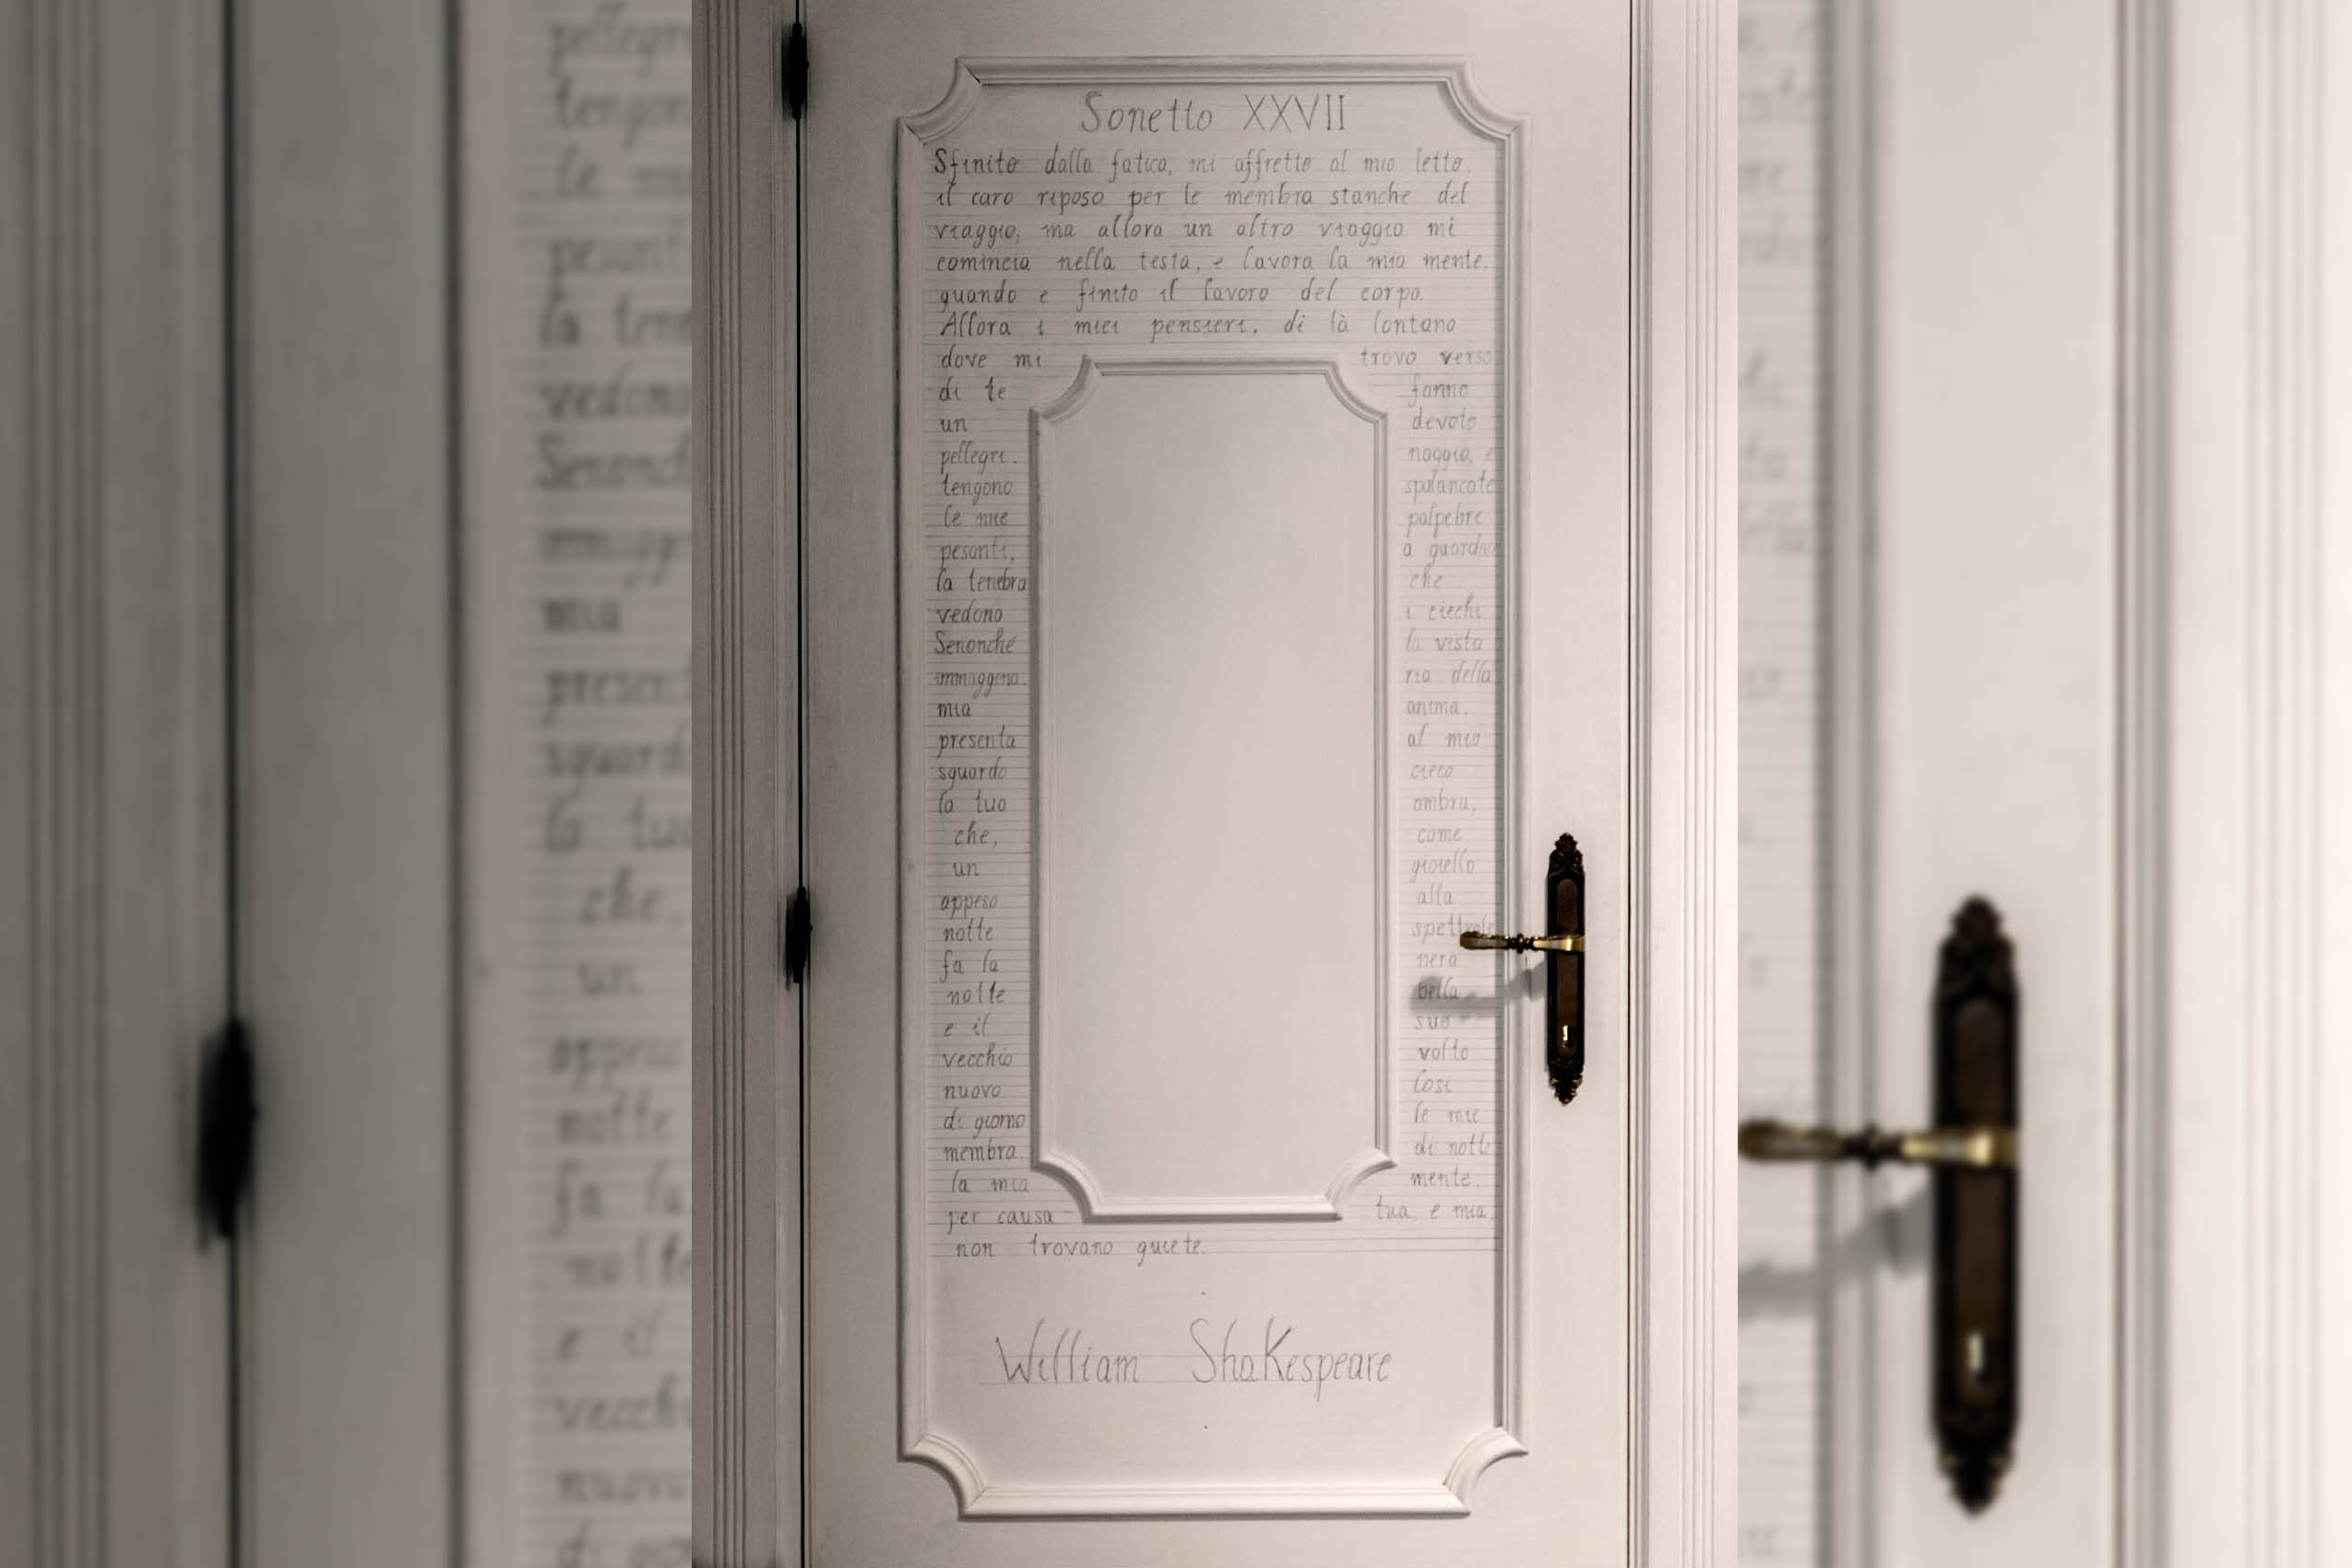 Sonetto XXVII
Sfinito dalla fatica, mi affretto al mio letto,
il caro riposo per le membra stanche del
viaggio, ma allora un altro viaggio mi
comincia nella testa, e lavora la mia mente,
quando e finito il lavoro del corpo.
Allora i miei pensieri, di là lontano
dove mi trovo verso
di te fanno
un devoto
pellegri- naggio, e
tengono spalancate
le mie palpebre
pesanti, a guardare
la tenebra che
vedono i ciechi
Senonché la vista
immagina ria della
mia anima.
presenta al mio
sguardo cieco
la tua ombra,
che, come
un gioiello
appeso alla
notte spettrale
fa la nera
notte bella
e il suo
vecchio volto
nuovo. Così
di giorno le mie
membra. di notte
la mia mente.
per causa tua, e mia,
non trovano quiete.
William ShaKespeare